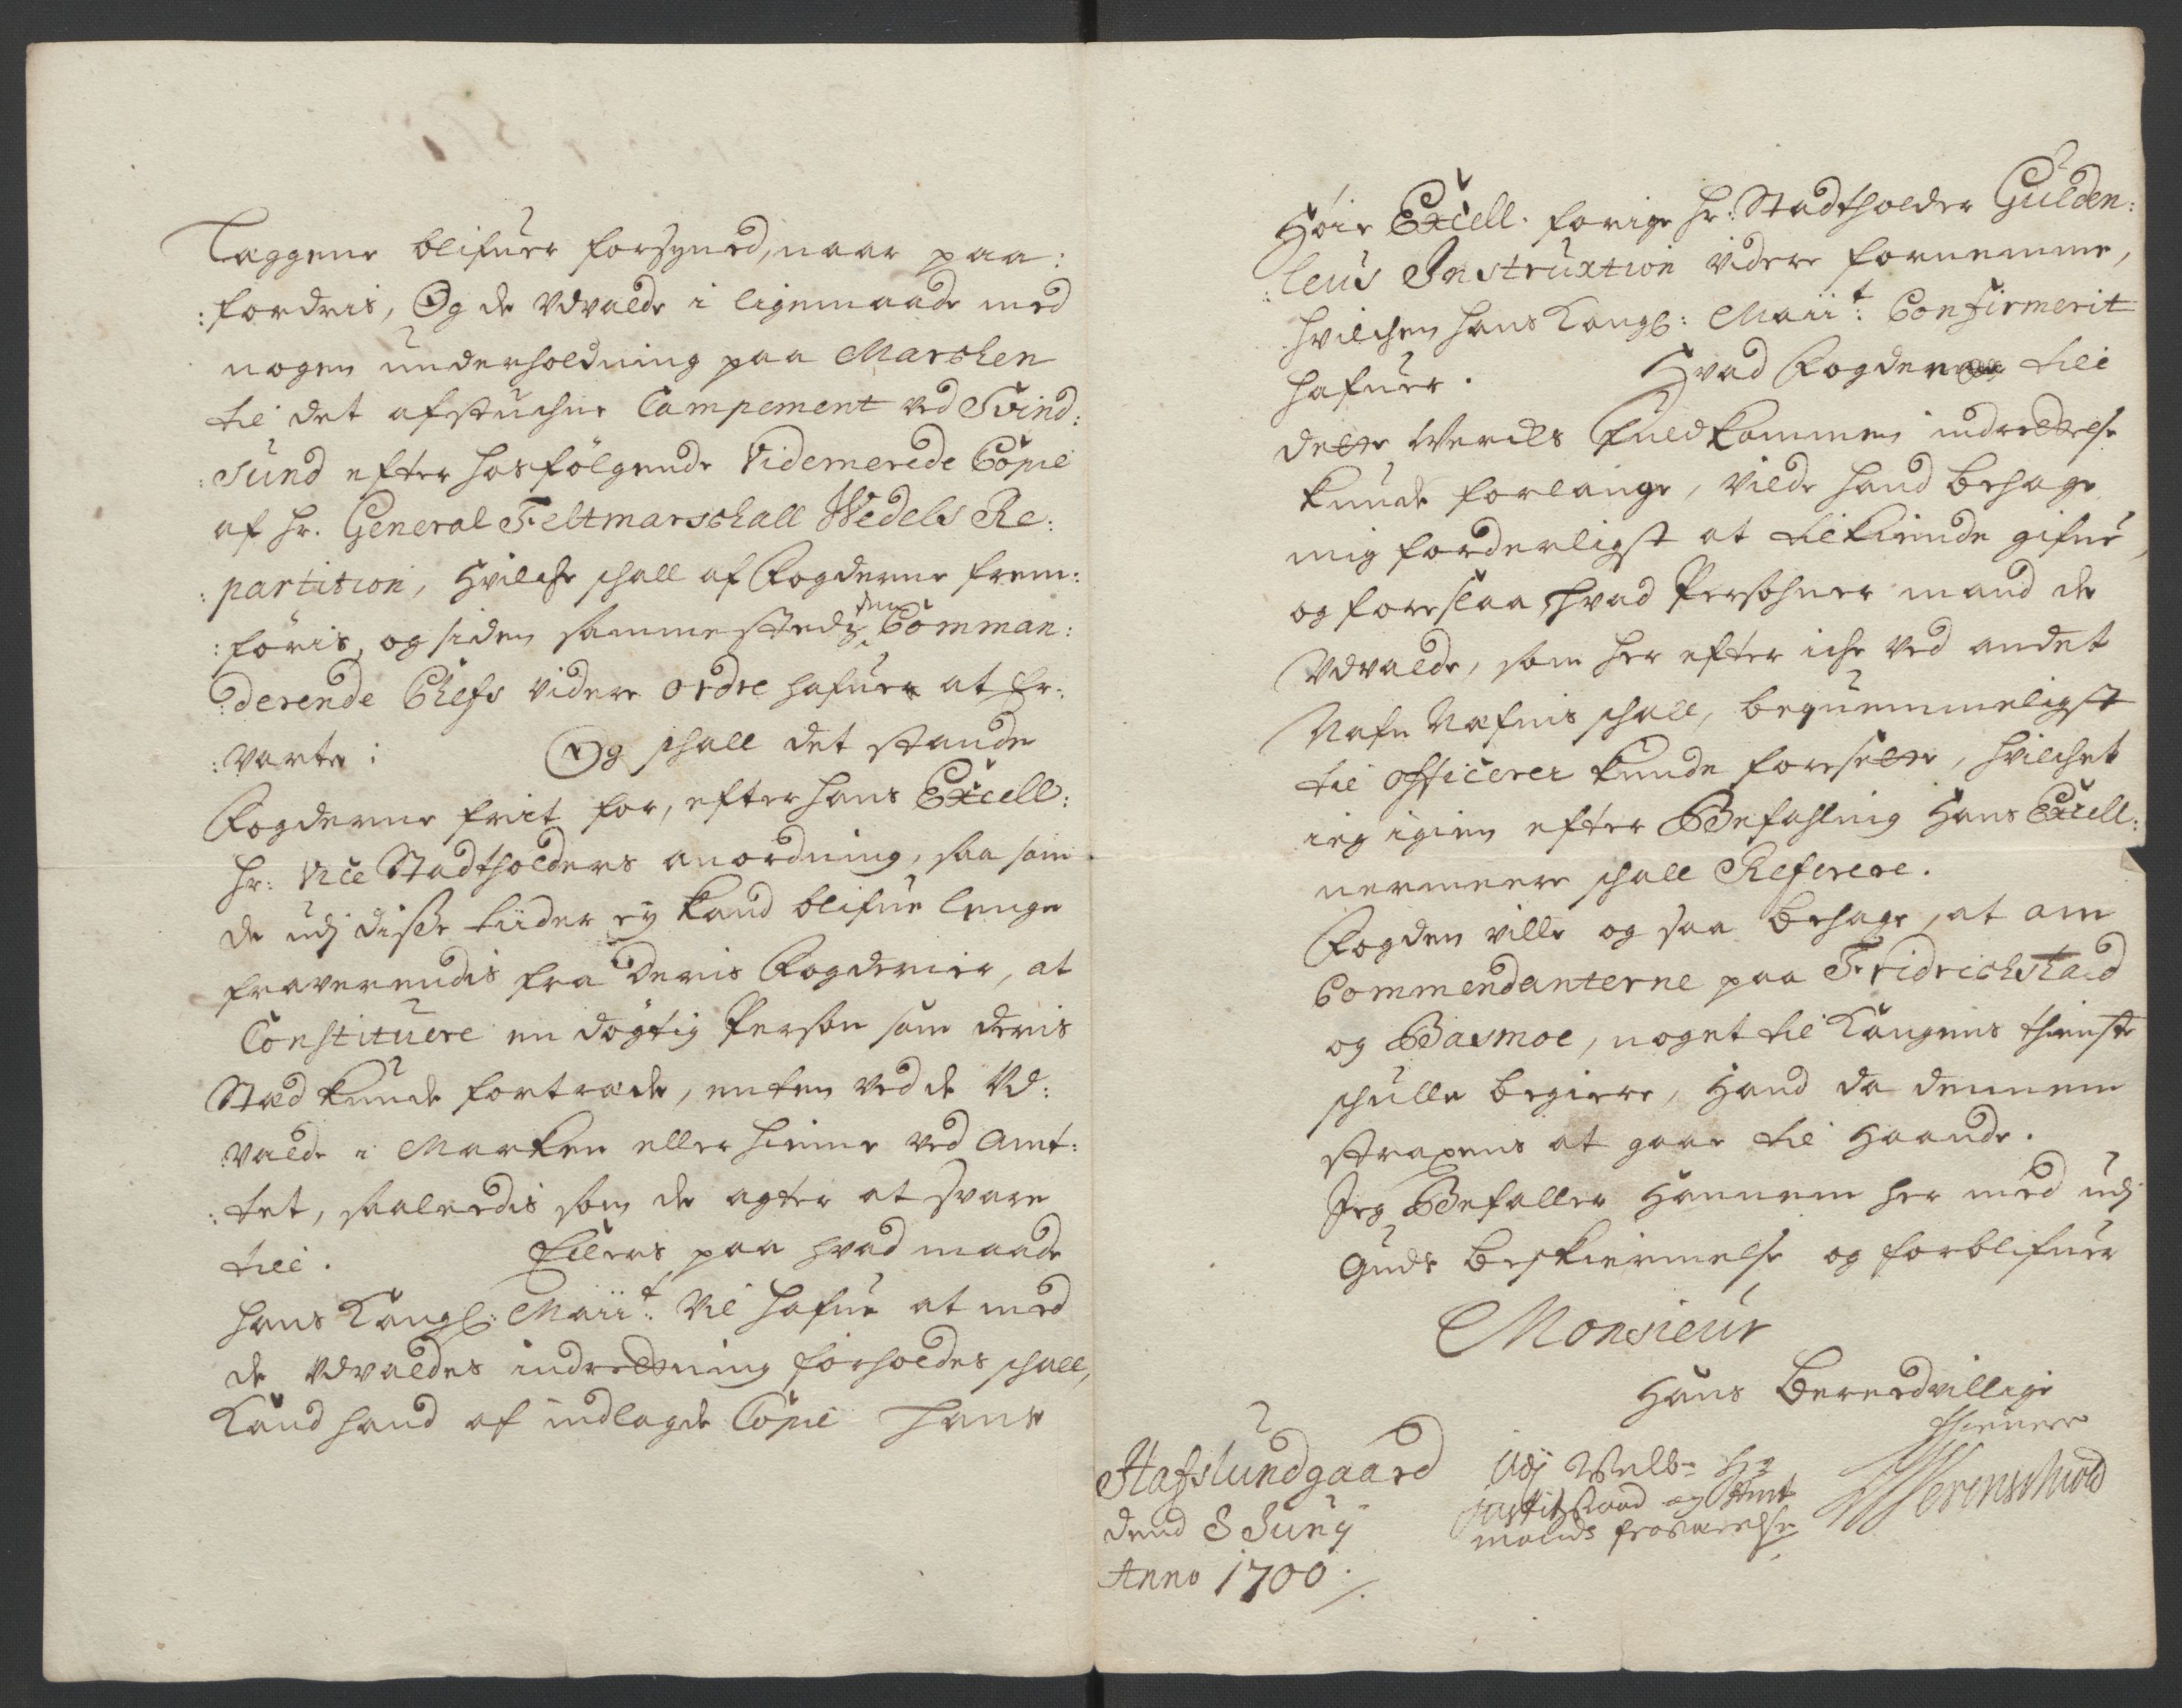 Læggene blifuer forsyned, naar paa:
:fordris, Og de Udvalde i ligemaade med
nogen underholdning paa Marchen
til det afstuchne Campement ved Svind:
:Sund efter hosfölgende Videmerede Copie
af Hr. General Feltmarschall Wedels Re:
:partition, Hvilche schall af Fogderne frem:
:föris, og siden sammestedz den Comman:
:derende Chefs videre ordre hafuer at Er:
:varte: Og schall det staande
Fogderne frit for, efter hans Excell:
Hr: Vice Stadtholders anordning, saa som
de udj disse tiider ey kand blifue lenge
fraverendis fra Deris Fogderier, at
Constituere en dögtig Person som deris
Stæd kunde fortræde, enten ved de Ud:
:valde i Marken eller hiemme ved Amt:
:tet, saaleedis som de agter at svare
till. Ellers paa hvad maade
hans Kongl: Maiit: vil hafue at med
de Udvaldes indretning forholdes schall,
Kand hand af indlagde Copie hans
Höie Excell. forige Hr: Stadtholder Gulden:
:leus Instruxtion videre fornemme,
hvilchen hans Kongl: Maiit: Confirmerit
hafuer. Hvad Fogden till
dette Wercks fuldkommen indrettelse
kunde forlange, vilde hand behage
mig forderligst at tilkiende gifue,
og foreslaa hvad Persohner mand de
Udvalde, som her efter iche ved andet
Nafn Næfnis schall, bequemmeligst
til officerer kunde foresette, hvilchet
ieg igien efter Befahling Hans Excell:
nermeere schall Referere.
Fogden ville og saa behage, at om
Commendanterne paa Fridrichstad
og Basmoe, noget til Kongens thieniste
schulle begiere, Hand da dennem
straxens at gaae til Haande.
Jeg Befaller Hannem her med udj
Guds beskiermelse og forblifuer
Monsieur
Hans Bereedvillige
thienere
Hafslundgaard
dend 8 Junij
Anno 1700
Udj Welb: Hr
justitzRaad og Amt
mands fraværelse
Werenschiold